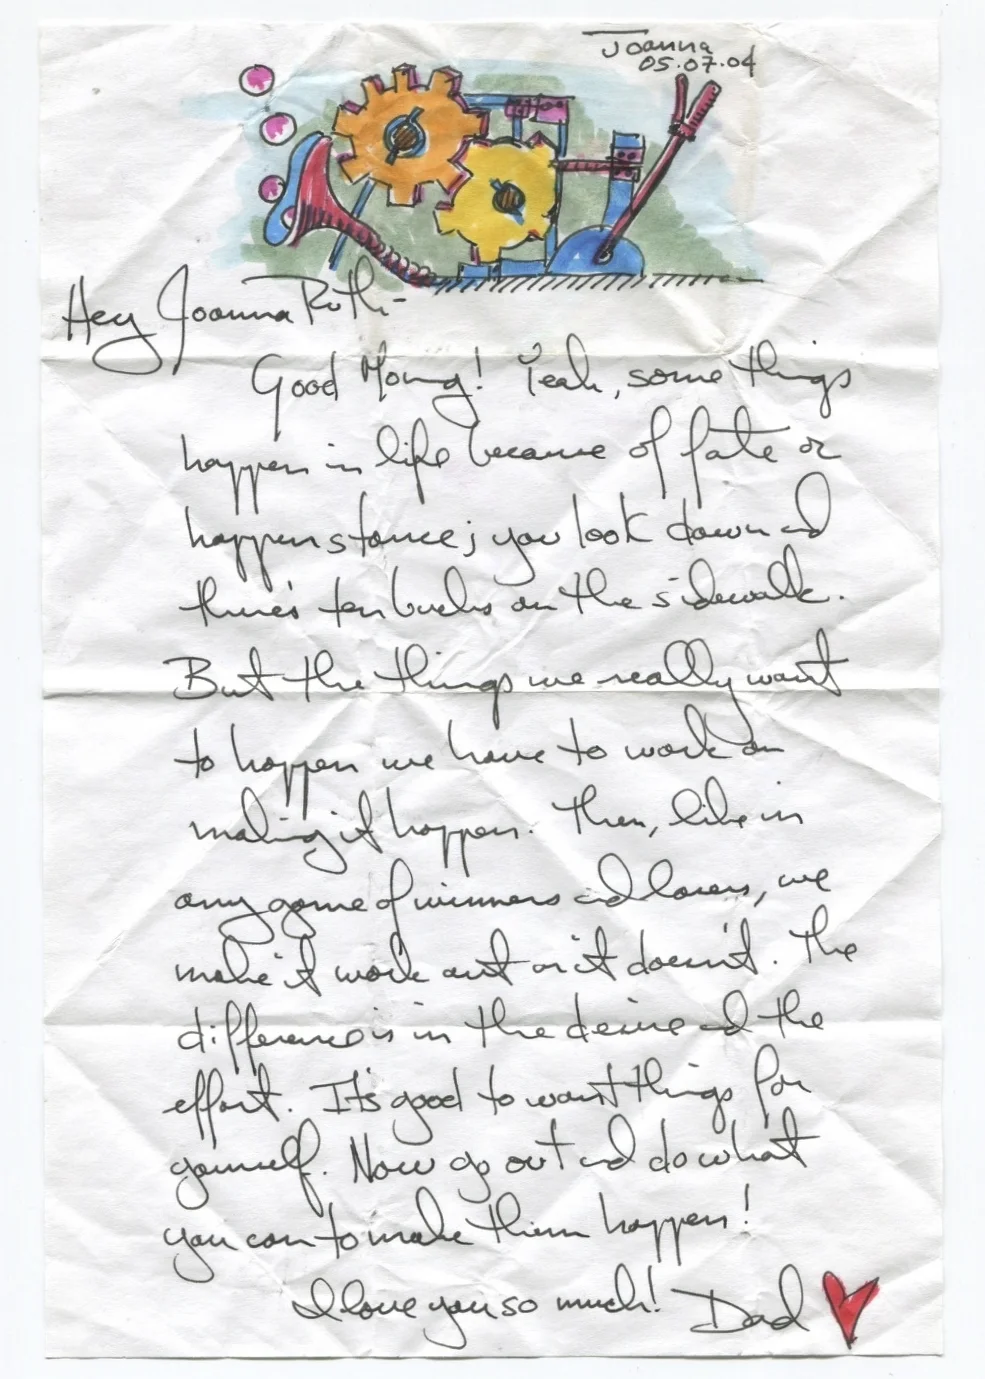 Joanna
05.07.04
Hey Joanna Ruth-
Good Morng! Yeah, some things
happen in life because of fate or
happenstance; you look down and
there's ten bucks on the sidewalk.
But the things we really want
to happen we have to work on
making it happen. Then, like in
any game of winners and losers, we
make it work out or it doesn't. The
difference is in the desire and the
effort. It's good to want things for
yourself. Now go out and do what
you can to make them happen!
I love you so much! Dad